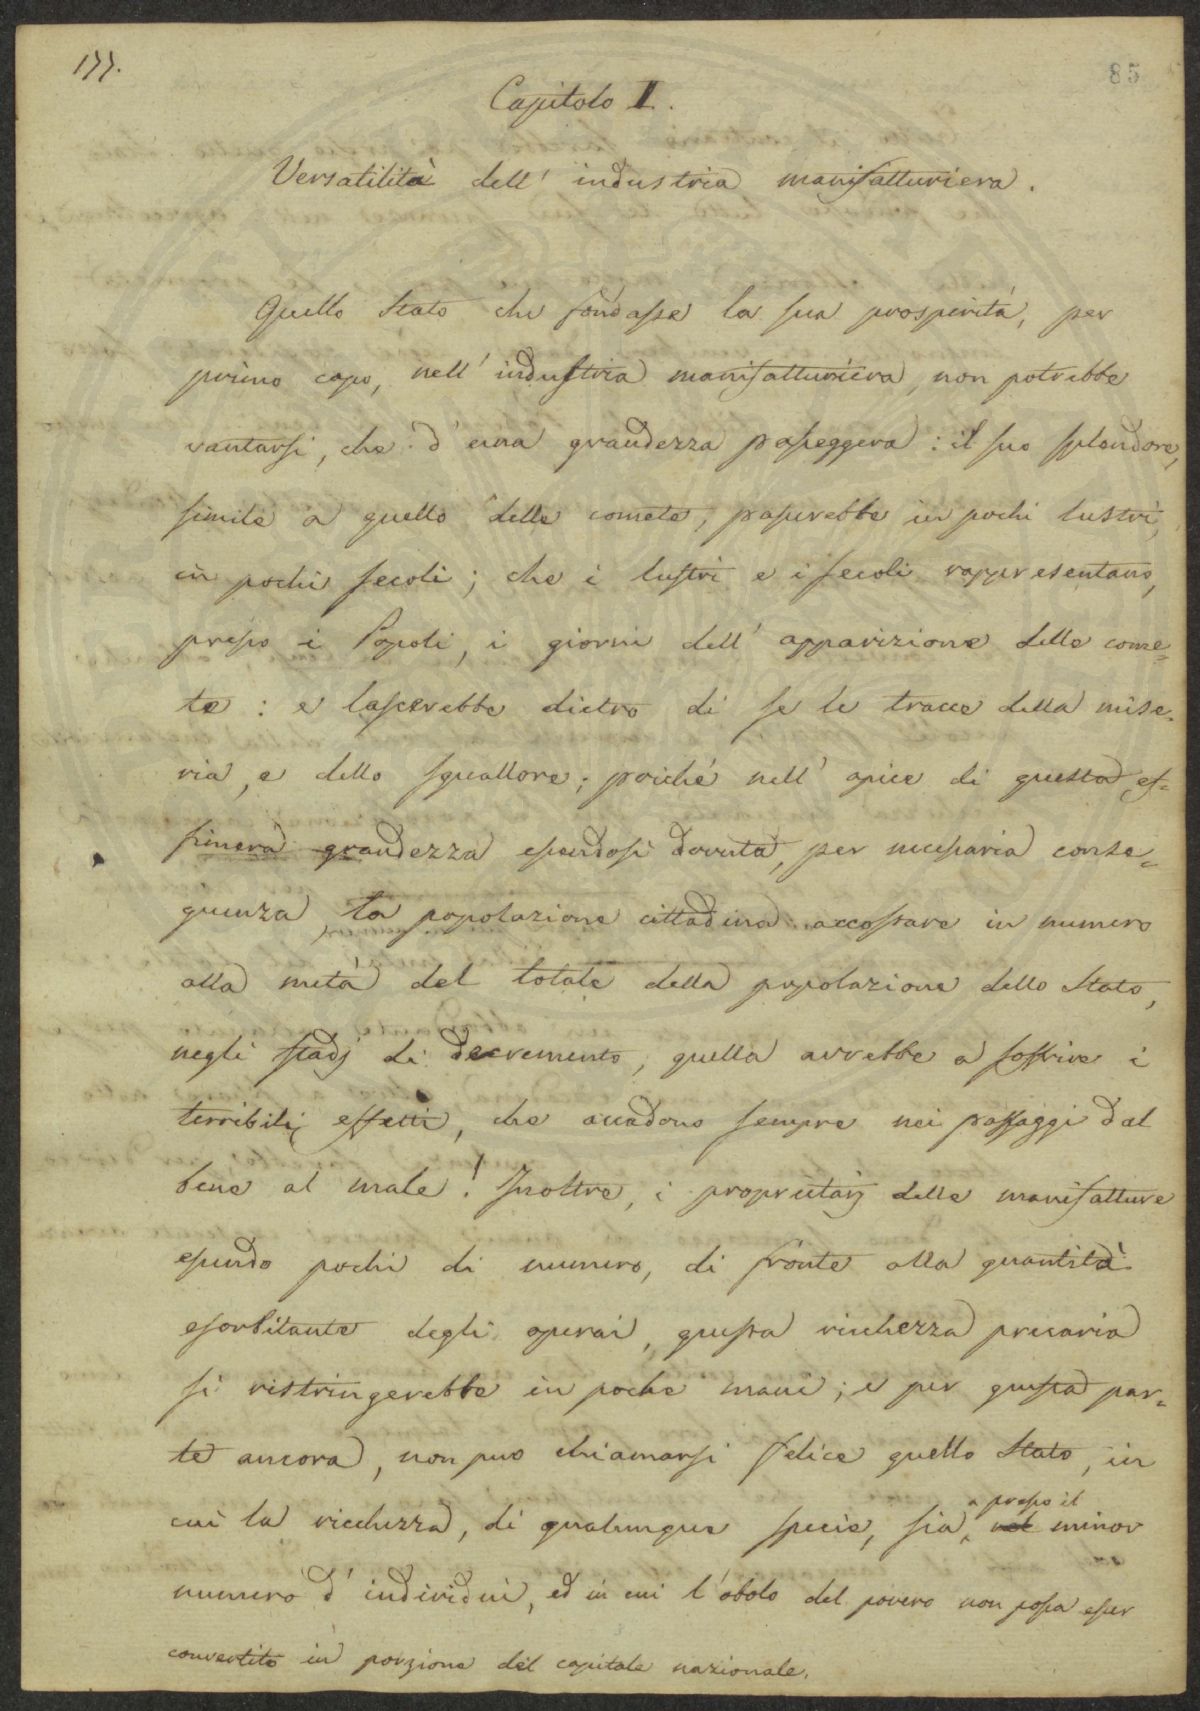 177.
85
Capitolo II.
Versatilità dell' industria manifatturiera.
Quello Stato che fondasse la sua prosperità, per
primo capo, nell' industria manifatturiera, non potrebbe
vantarsi, che d' una grandezza passeggera: il suo splendore,
simile a quello delle comete, passerebbe in pochi lustri,
in pochi secoli; che i lustri e i secoli rappresentano,
presso i Popoli, i giorni dell' apparizione delle come-
te: e lascerebbe dietro di se le tracce della mise-
ria, e dello squallore; poiché nell' apice di questa ef-
fimera grandezza essendosi dovuta, per necessaria conse-
guenza, la popolazione cittadina accostare in numero
alla metà del totale della popolazione dello Stato,
negli stadj di decremento, quella avrebbe a soffrire i
terribili effetti, che accadono sempre nei passaggi dal
bene al male! Inoltre, i proprietarj delle manifatture
essendo pochi di numero, di fronte alla quantità
esorbitante degli operai, questa ricchezza precaria
si ristringerebbe in poche mani; e per questa par-
te ancora, non puo chiamarsi felice quello Stato, in
cui la ricchezza, di qualunque specie, sia, nel minor
presso il
numero d' individui, ed in cui l' obolo del povero non possa esser
convertito in porzione del capitale nazionale.